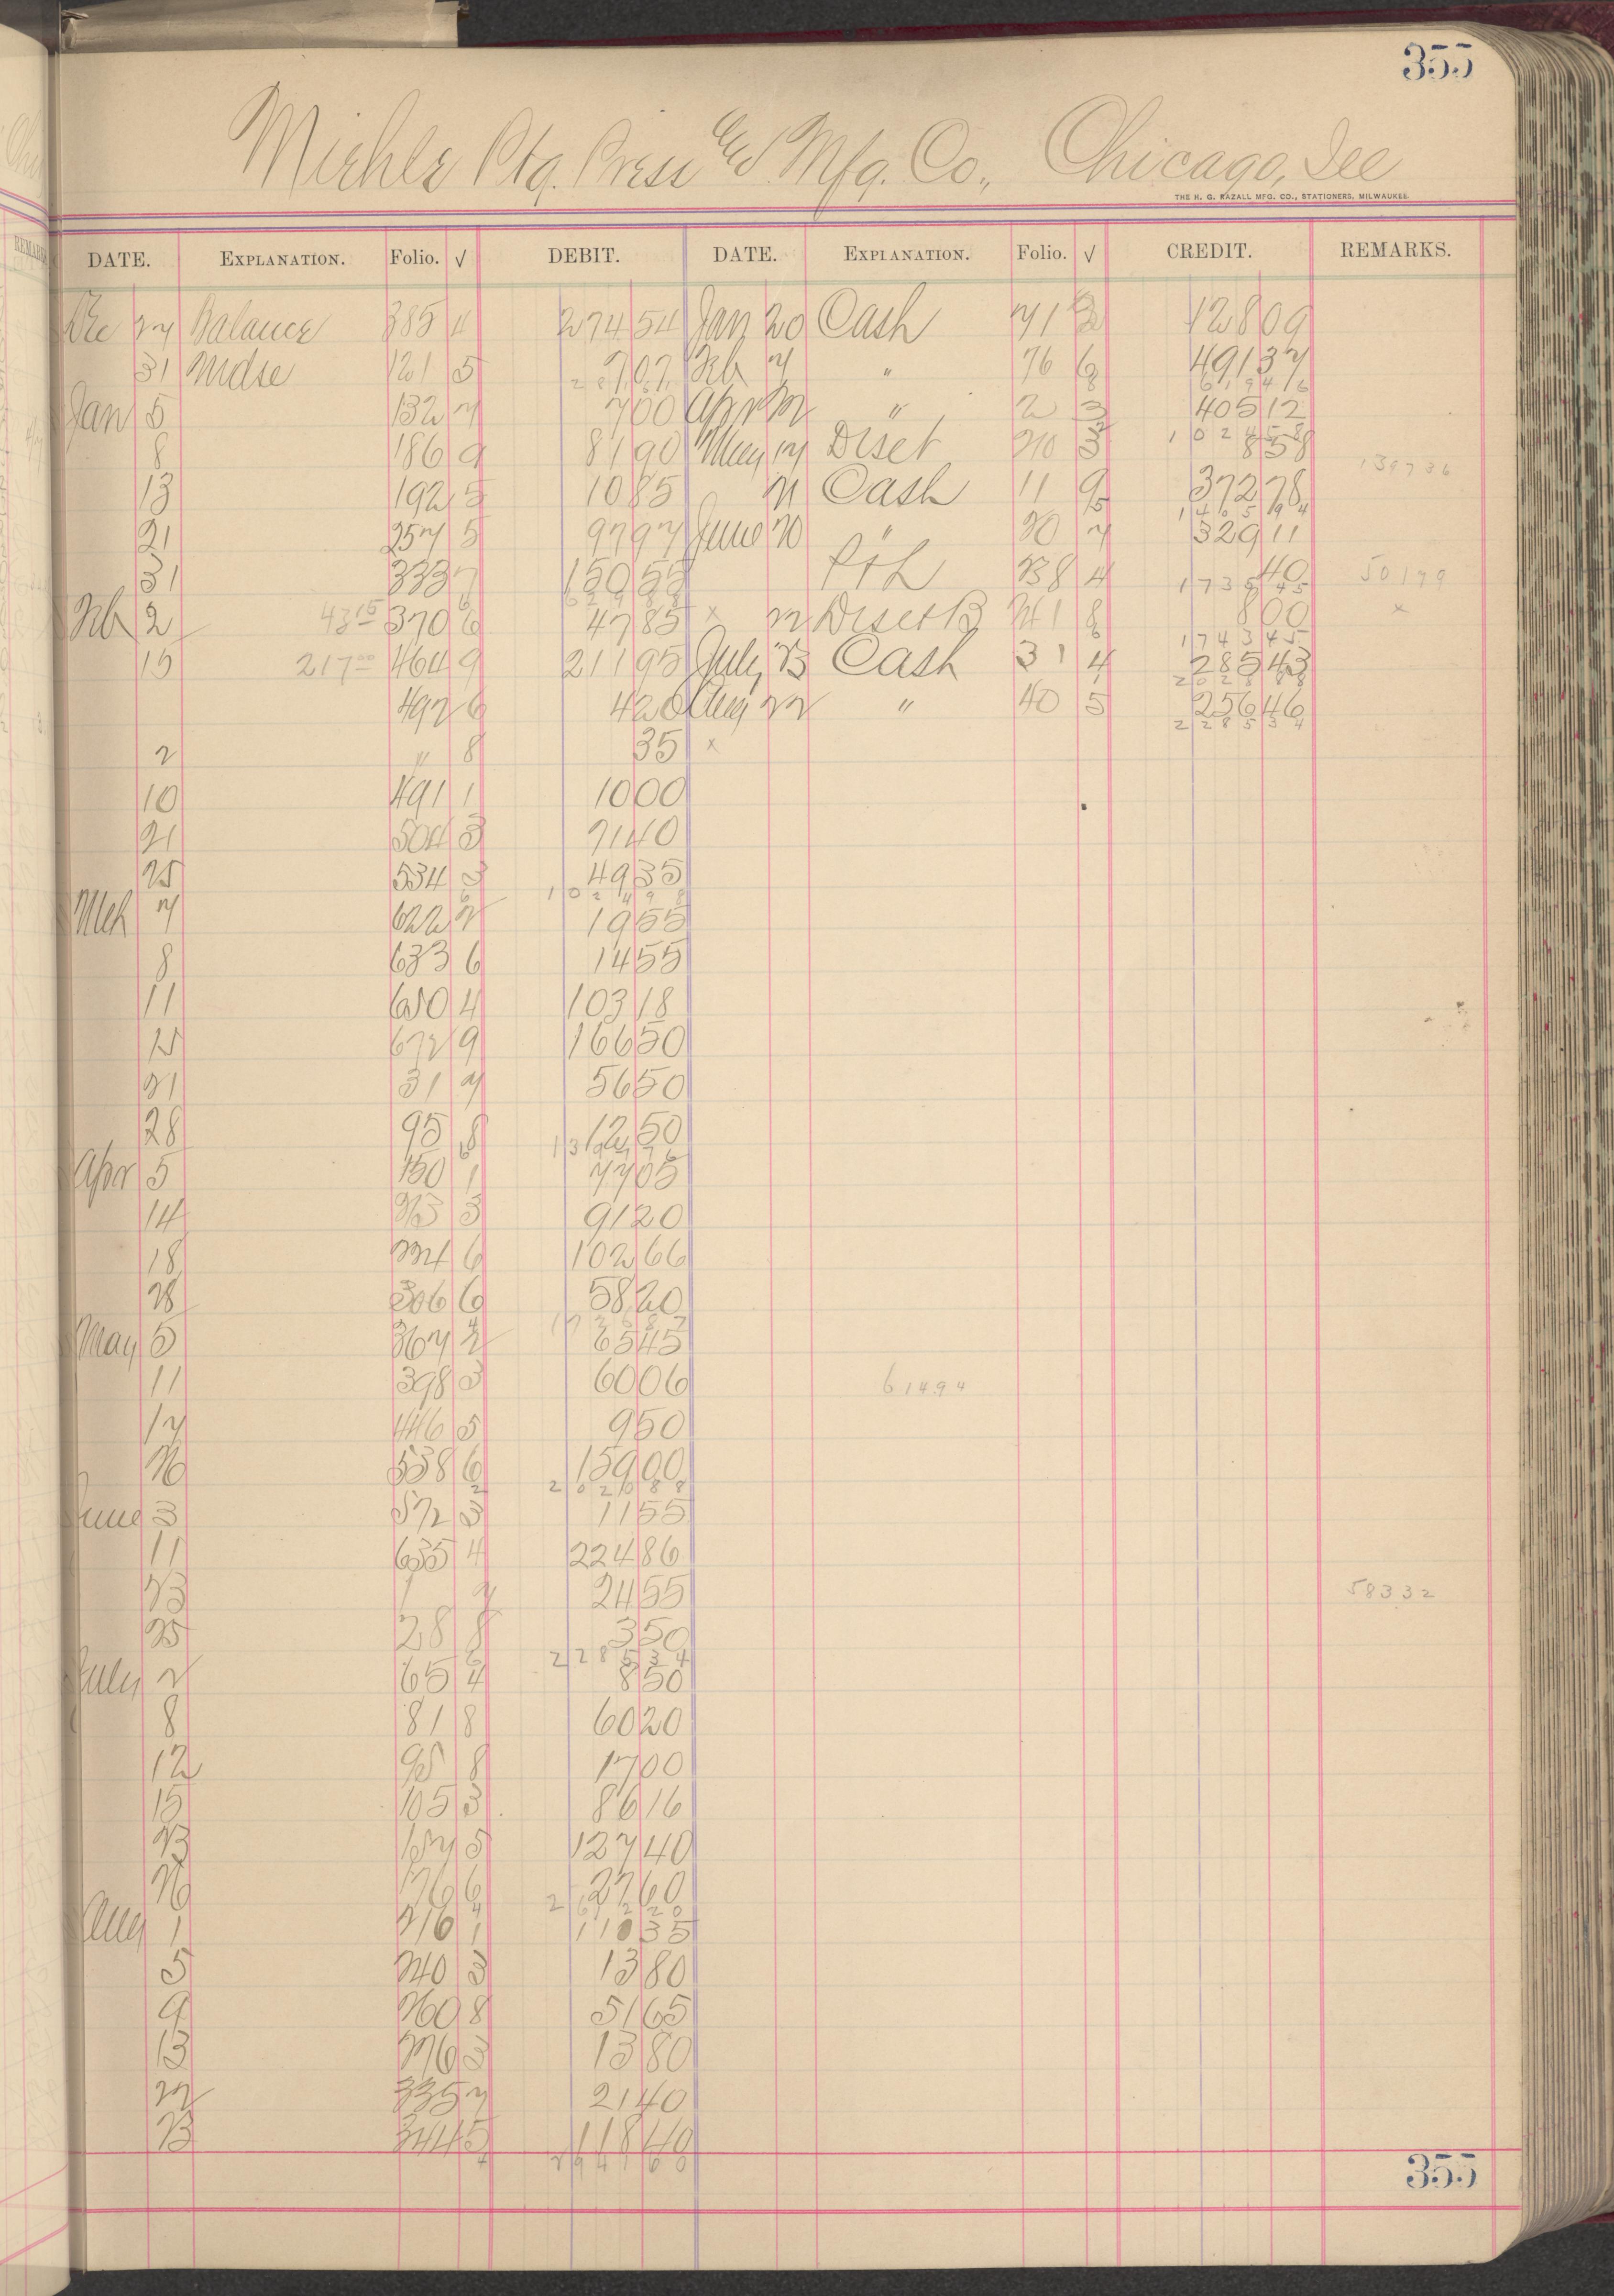 355
Miehle Ptg. Press and Mfg. Co., Chicago, Ill
THE H. G. RAZALL MFG. CO., STATIONERS, MILWAUKEE.
DATE. EXPLANATION. Folio. √ DEBIT. DATE. EXPLANATION. Folio. √ CREDIT. REMARKS.
Dec 27 Balance 385 4 274 54 Jan 20 Cash 71 2 128 09
31 Mdse 121 5 7 07 Feb 7 " 76 6 491 37
Jan 5 132 7 7 00 Apr 12 " 2 3 405 12
8 186 9 81 90 May 17 Disct 210 3 8 58
1397 36
13 192 5 10 85 21 Cash 11 9 372 78
21 257 5 97 97 June 20 " 20 7 329 11
31 333 7 150 55 Frt 238 4 40 501 79
Feb 2 43 15 370 6 47 85 x 22 Disct B 241 8 8 00 x
15 217 00 464 9 211 95 July 23 Cash 31 4 285 43
497 6 4 20 Aug 22 " 40 5 256 46
2 " 8 35 x
10 491 1 10 00
21 504 3 71 40
25 534 3 49 35
1024 98
Mch 7 622 7 19 55
8 633 6 14 55
11 650 4 103 18
15 672 9 166 50
21 31 7 56 50
28 95 8 12 50
Apr 5 150 1 77 05
14 215 3 91 20
18 224 6 102 66
28 306 6 58 20
May 5 367 2 65 45
11 398 3 60 06 614 94
17 446 5 9 50
26 538 6 159 00
2020 88
June 3 572 3 11 55
11 635 4 224 86
23 1 7 24 55 583 32
25 28 8 3 50
2285 34
July 2 65 4 8 50
8 81 8 60 20
12 95 8 17 00
15 105 3 86 16
23 157 5 127 40
26 176 6 27 60
2612 20
Aug 1 216 1 110 35
5 240 3 13 80
9 260 8 51 65
13 276 3 13 80
22 335 7 21 40
23 344 5 118 40
2941 60
355